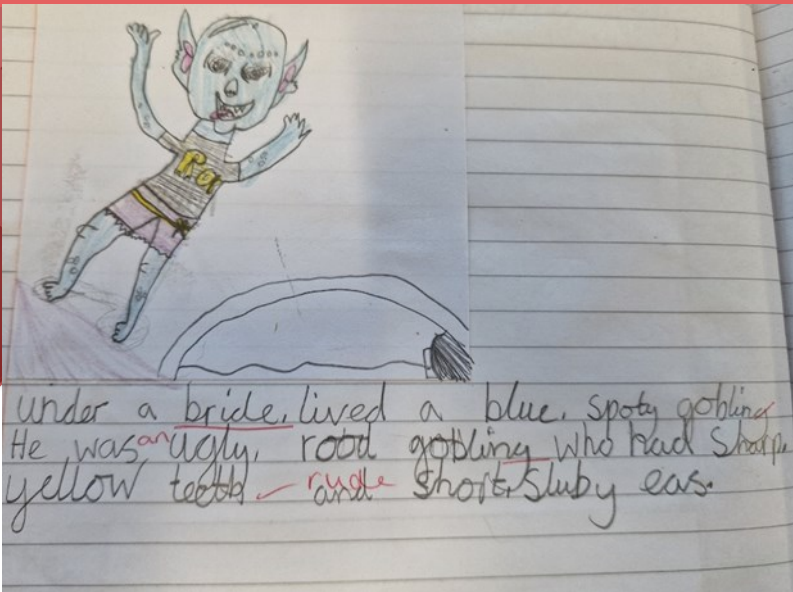 Ra
under a bride, lived a blue, spoty gobling
He was an ugly, rood gobling who had Sharp,
yellow teeth rude and short, sluby eas.